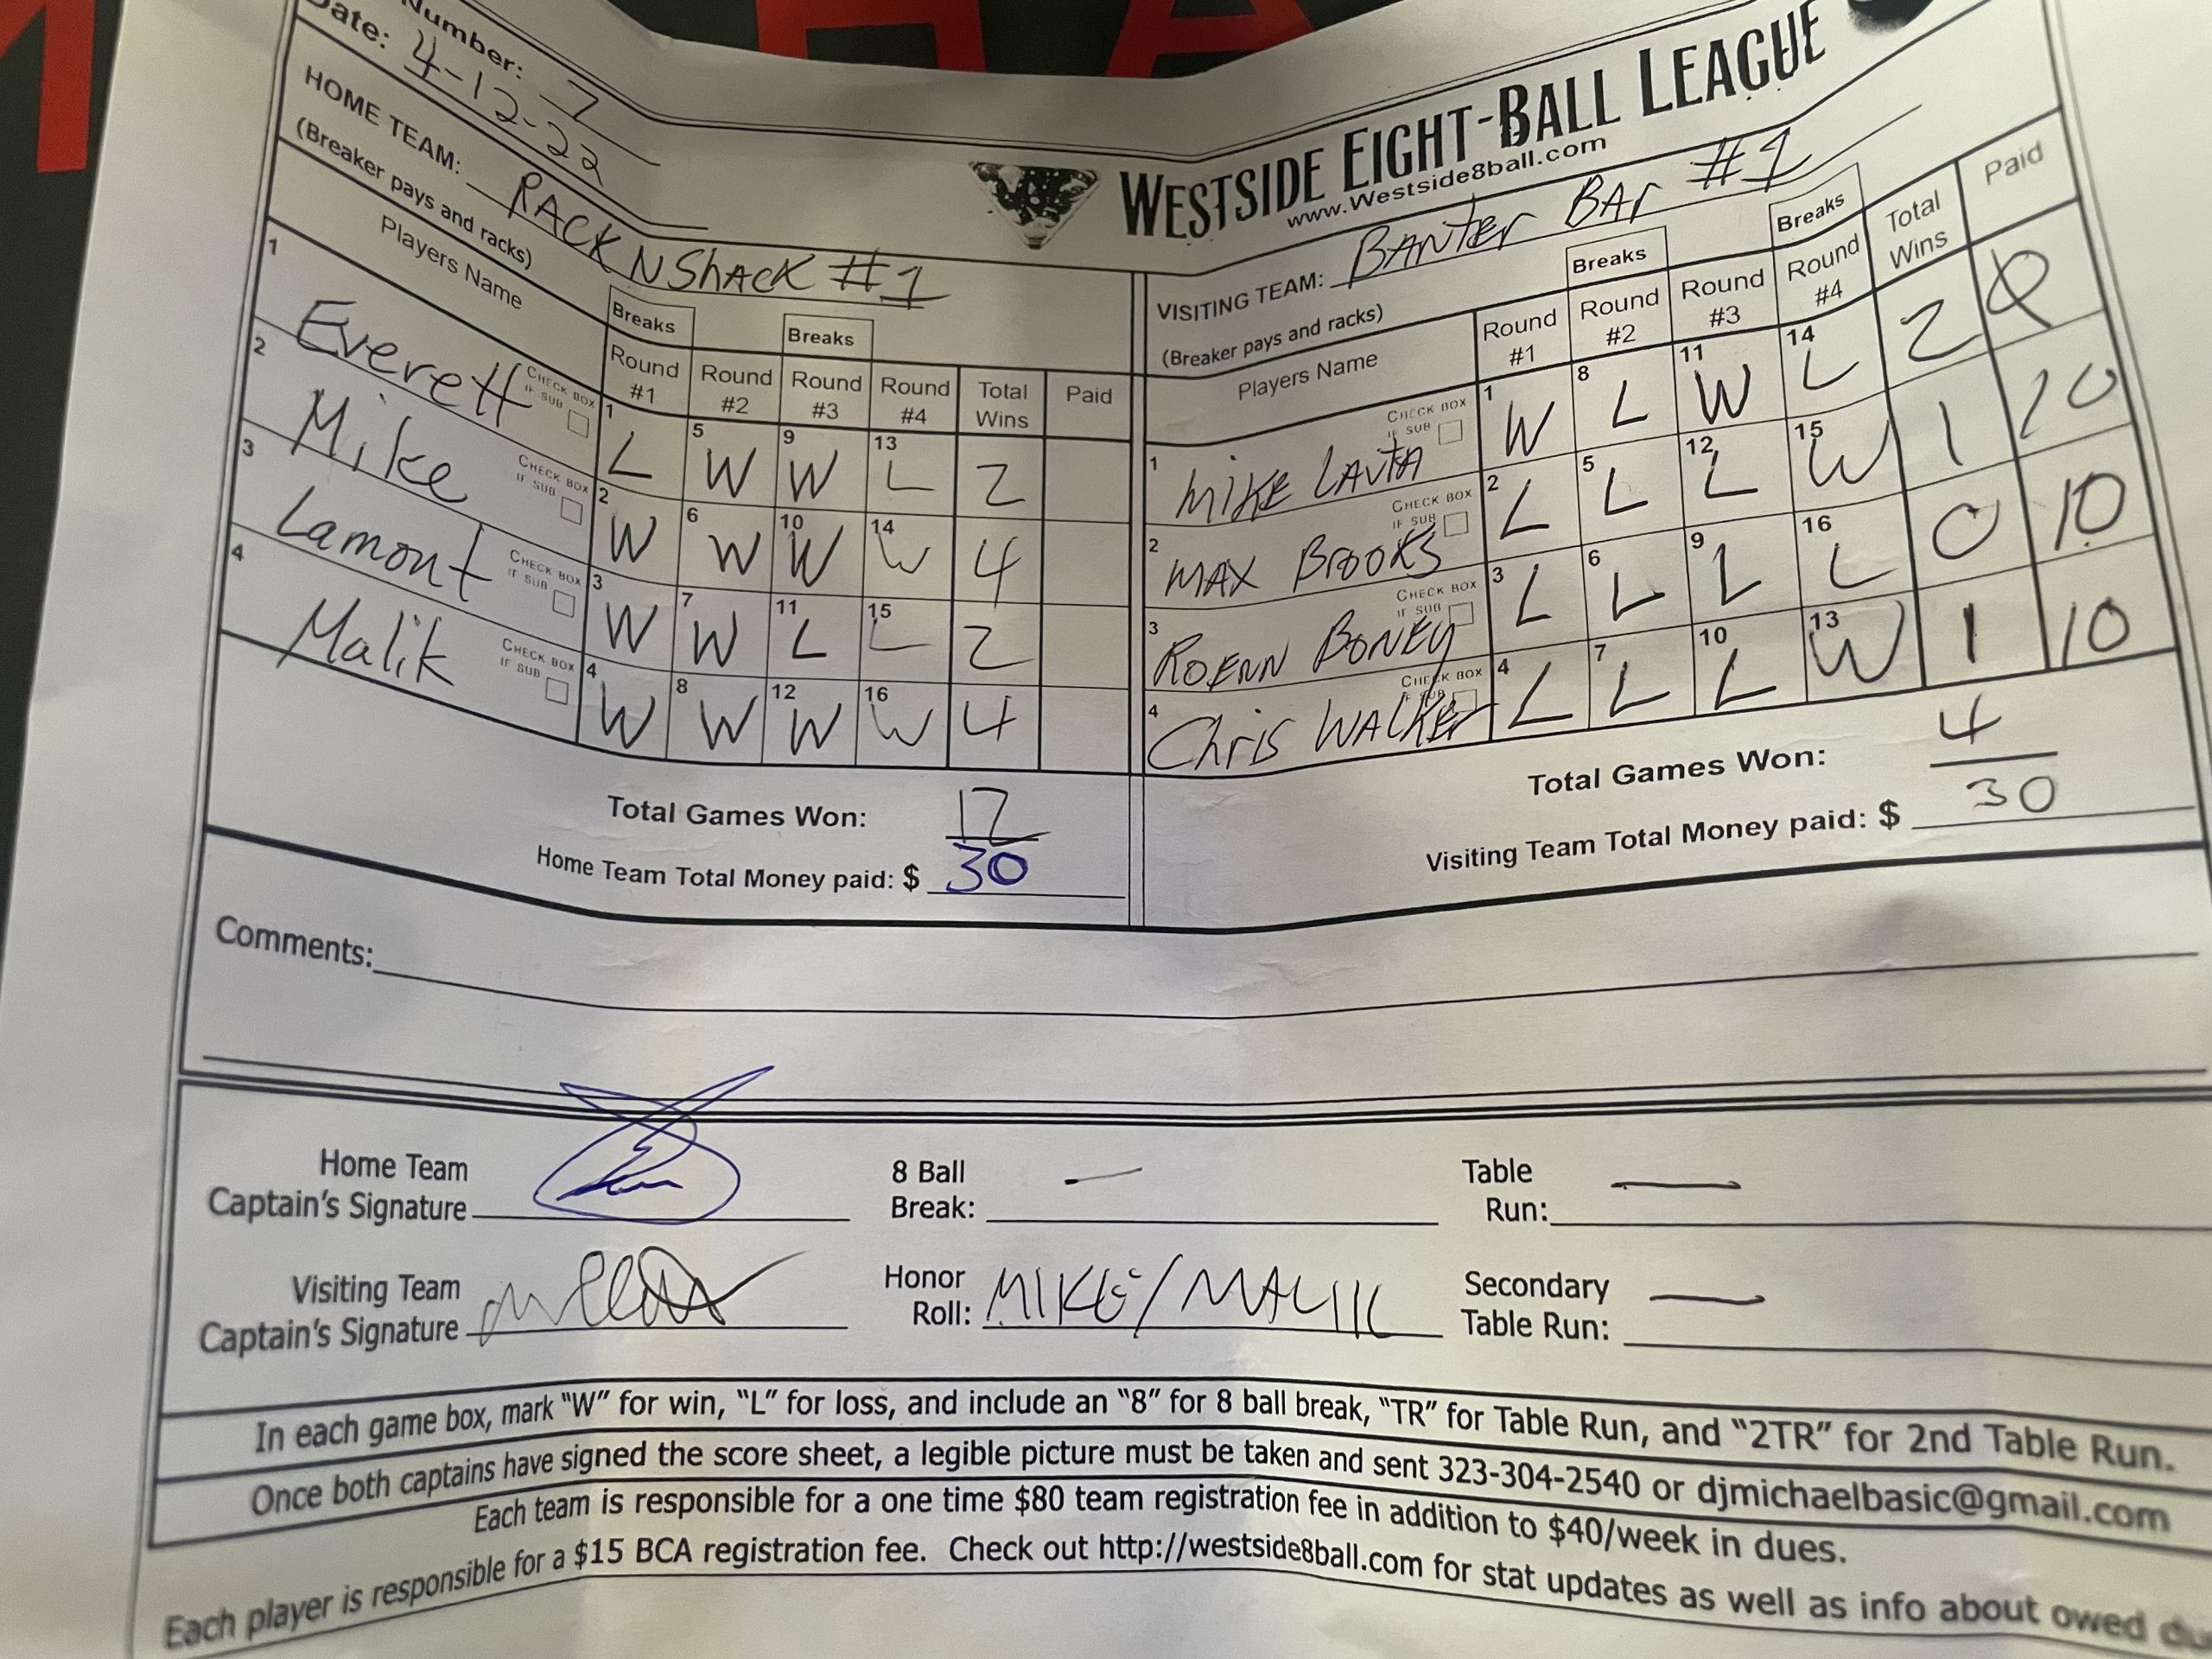 Number: 7
Date: 4-12-22
WESTSIDE EIGHT-BALL LEAGUE
www.Westside8ball.com
HOME TEAM: RACK N SHACK #1
(Breaker pays and racks)
Players Name
Breaks
Breaks
Round #1 Round #2 Round #3 Round #4 Total Wins Paid
1 Everett CHECK BOX IF SUB 1 L 5 W 9 W 13 L 2
2 Mike CHECK BOX IF SUB 2 W 6 W 10 W 14 W 4
3 Lamont CHECK BOX IF SUB 3 W 7 W 11 L 15 L 2
4 Malik CHECK BOX IF SUB 4 W 8 W 12 W 16 W 4
Total Games Won: 12
Home Team Total Money paid: $ 30
VISITING TEAM: BANTER BAr #1
(Breaker pays and racks)
Players Name
Breaks
Breaks
Round #1 Round #2 Round #3 Round #4 Total Wins Paid
1 MIKE LAVTA CHECK BOX IF SUB 1 W 8 L 11 W 14 L 2
2 MAX BROOKS CHECK BOX IF SUB 2 L 5 L 12 L 15 W 1 10
3 ROENN BONEY CHECK BOX IF SUB 3 L 6 L 9 L 16 L 0 10
4 Chris WALKER CHECK BOX IF SUB 4 L 7 L 10 L 13 W 1 10
Total Games Won: 4
Visiting Team Total Money paid: $ 30
Comments:
Home Team
Captain's Signature
8 Ball
Break: —
Table
Run: —
Visiting Team
Captain's Signature
Honor
Roll: MIKE/MALIK
Secondary
Table Run: —
In each game box, mark "W" for win, "L" for loss, and include an "8" for 8 ball break, "TR" for Table Run, and "2TR" for 2nd Table Run.
Once both captains have signed the score sheet, a legible picture must be taken and sent 323-304-2540 or djmichaelbasic@gmail.com
Each team is responsible for a one time $80 team registration fee in addition to $40/week in dues.
Each player is responsible for a $15 BCA registration fee. Check out http://westside8ball.com for stat updates as well as info about owed